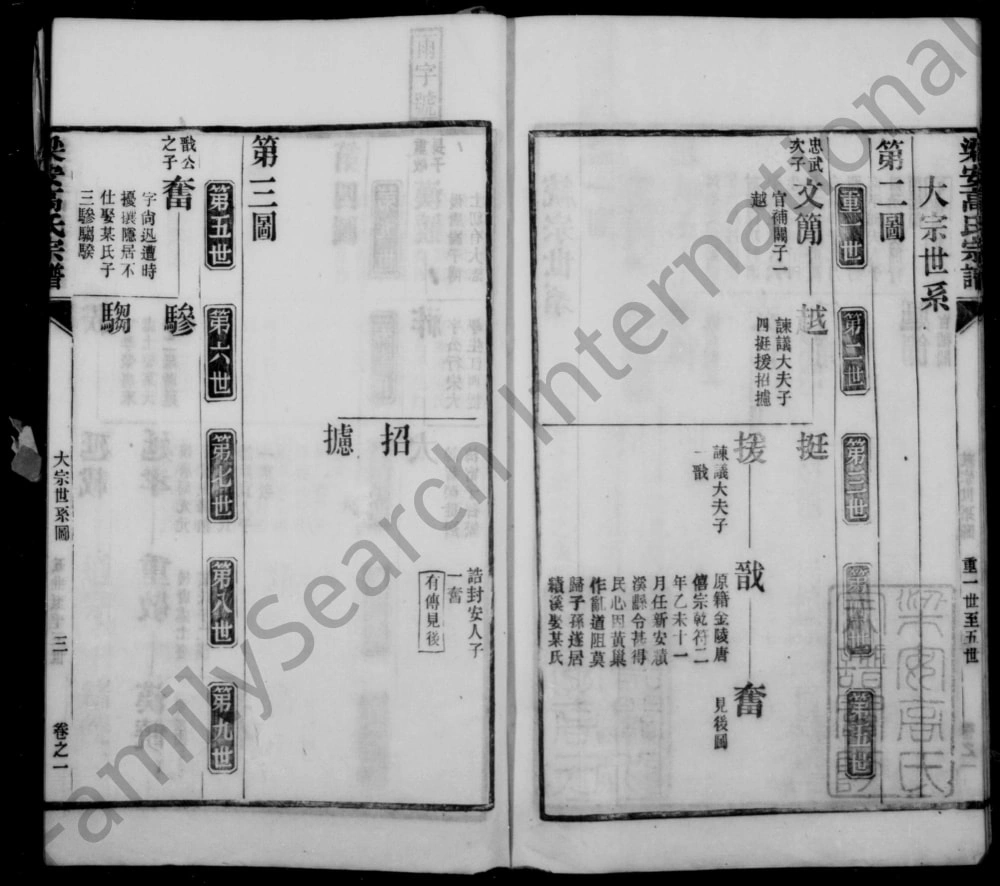 梁安高氏宗譜
重一世至五世
大宗世系
第二圖
重一世
第二世
第三世
第五世
忠武次子
文簡
官補闕子一
越
越
諫議大夫子
四挺援招攄
挺
援
諫議大夫子
一戬
戬
原籍金陵唐
僖宗乾符二
年乙未十一
月任新安績
溪縣令甚得
民心因黃巢
作亂道阻莫
歸子孫遂居
績溪娶某氏
奮
見後圖
梁安高氏
誥封安人子
一奮
有傳見後
招
攄
第三圖
第五世
第六世
第七世
第八世
第九世
戬公之子
奮
字尚迅遭時
擾攘隱居不
仕娶某氏子
三驂騶騤
驂
騶
梁安高氏宗譜
大宗世系圖
三
卷之一
FamilySearch International